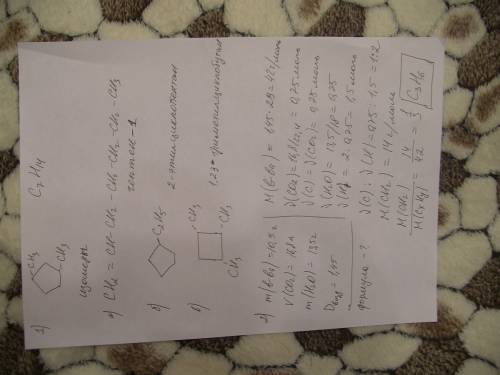 1) CH₃ CH₃ C₇H₁₄
изомеры
а) CH₂ = CH - CH₂ - CH₂ - CH₂ - CH₂ - CH₃
гептен-1
б) C₂H₅ 2-этилциклопентан
в) CH₃ CH₃ CH₃ 1,2,3-триметилциклобутан
2) m(в-ва) = 10,5 г
V(CO₂) = 16,8 л
m(H₂O) = 13,5 г
Dвозд = 1,45
формула - ?
M(в-ва) = 1,45 · 29 = 42 г/моль
ν(CO₂) = 16,8/22,4 = 0,75 моль
ν(C) = ν(CO₂) = 0,75 моль
ν(H₂O) = 13,5/18 = 0,75
ν(H) = 2 · 0,75 = 1,5 моль
ν(C) : ν(H) = 0,75 : 1,5 = 1:2
M(CH₂) = 14 г/моль
M(CH₂) / M(CxHy) = 14/42 = 1/3 C₃H₆